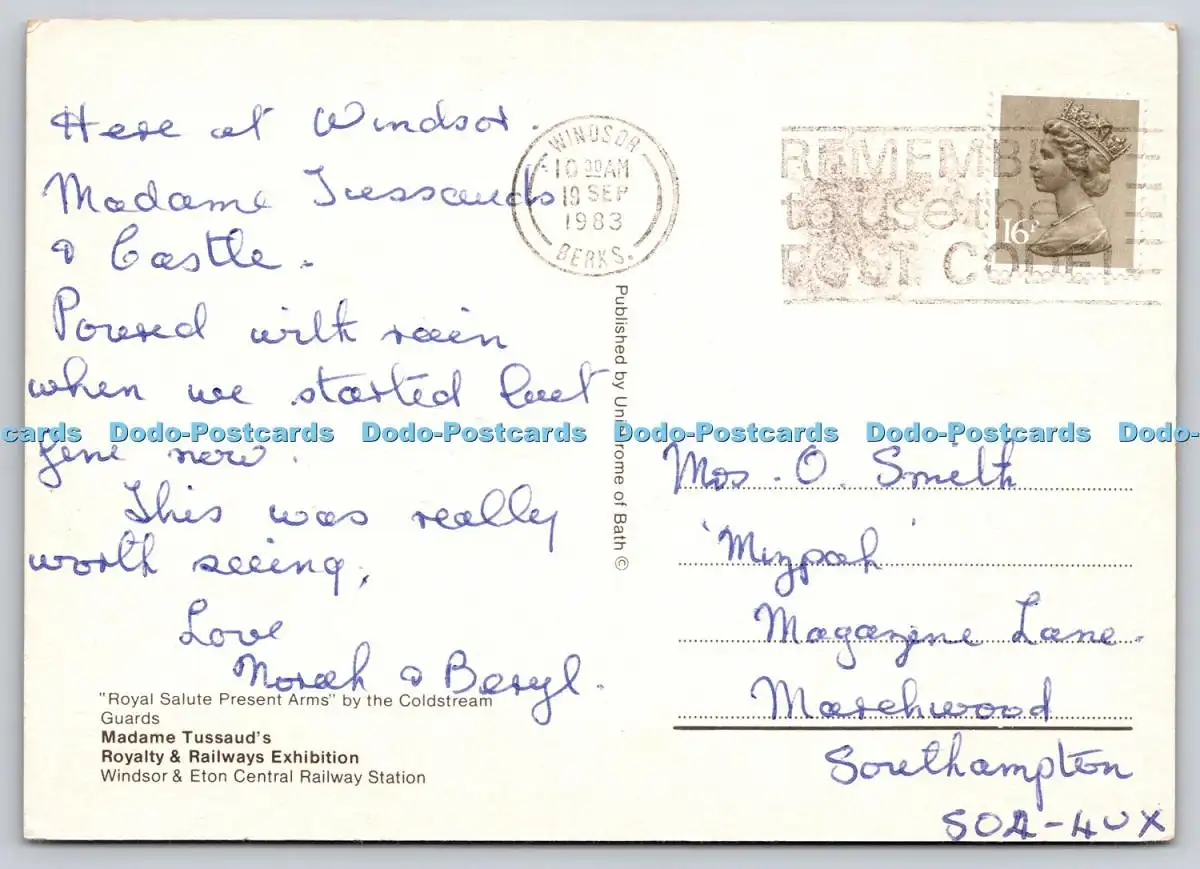 Here at Windsor.
Madame Tussauds
& Castle.
Poured with rain
when we started but
fine now.
This was really
worth seeing,
Love
Norah & Beryl.
"Royal Salute Present Arms" by the Coldstream
Guards
Madame Tussaud's
Royalty & Railways Exhibition
Windsor & Eton Central Railway Station
Published by Unichrome of Bath ©
WINDSOR
10 30 AM
19 SEP
1983
BERKS.
REMEMBE
to use the
POST CODE
16P
Mrs. O. Smith
'Mizpah'
Magazine Lane.
Marchwood
Southampton
SO4-4UX
cards Dodo-Postcards Dodo-Postcards Dodo-Postcards Dodo-Postcards Dodo-